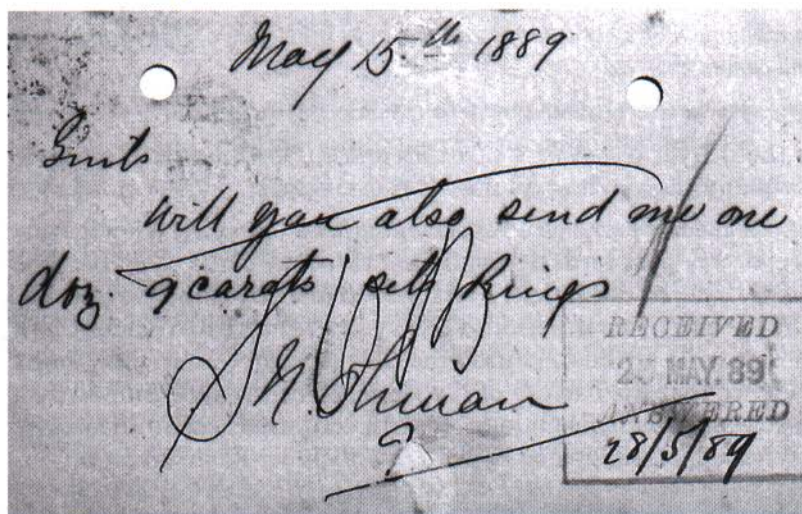 May 15th 1889
Gents
will you also send me one
doz. 9 carats sets Rings
RECEIVED
MAY. 89
ANSWERED
28/5/89